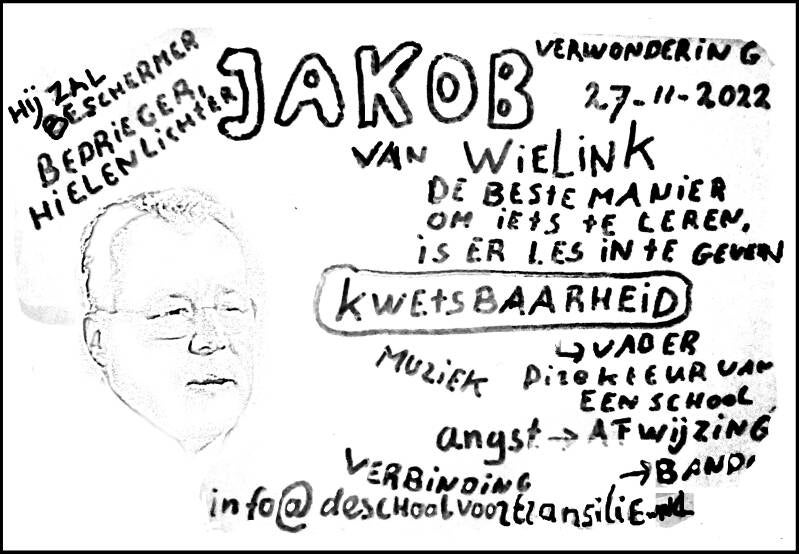 HIJ ZAL
BESCHERMER
BEDRIEGER,
HIELENLICHTER
JAKOB
VAN WIELINK
VERWONDERING
27-11-2022
DE BESTE MANIER
OM IETS TE LEREN,
IS ER LES IN TE GEVEN
KWETSBAARHEID
→ VADER
MUZIEK
DIREKTEUR VAN
EEN SCHOOL
angst → AFWIJZING
VERBINDING
→ BAND,
info@deschoolvoortransitie.nl